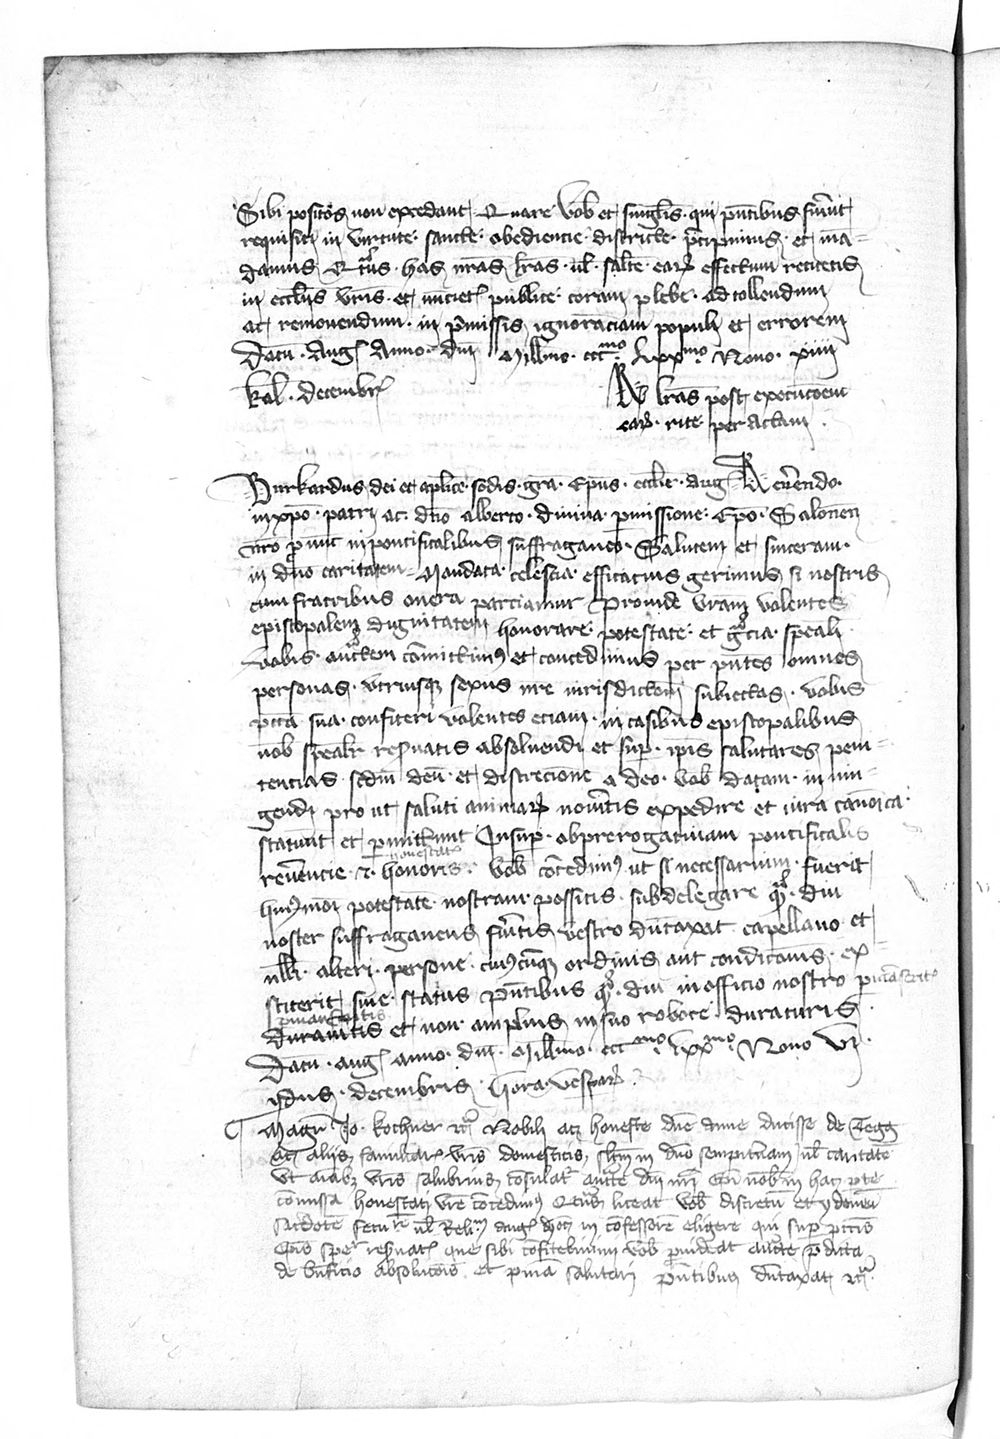 Sibi positos non excedant Quare vob et singlis qui pntibus fuerint
requisiti in virtute sancte obediencie districte pcipimus et ma=
damus Qtus has nras lras ul salte earum effectum recitetis
in ecclijs vris et nuncietis publice coram plebe ad tollendum
ac remouendum in pmissis ignoranciam populi et errorem
Datu Aug Anno dni Millmo ccc mo lxx mo Nono xiiij
kal decembr
R lras post execucoem
earum rite peractam
Burkardus dei et aplice sedis gra Epus ecclie Aug Reuerendo
in xpo patri ac dno alberto diuina pmissione Epo Salonen
nro pnunc in pontificalibus suffraganeo Salutem et sinceram
in dno caritatem Mandata celestia efficacius gerimus si nostris
cum fratribus onera parciamur Proinde vram volentes
episcopalem dignitatem honorare potestate et gracia speali
Vobis auctem comittimus et concedimus per pntes omnes
personas vtriusque sexus iure iurisdictoni subiectas vobis
pcca sua confiteri volentes eciam in casibus episcopalibus
nob spealr reseruatis absoluendi et sup ipis salutares peni=
tencias scdm deu et discrecione a deo vob datam in iun=
gendi pro ut saluti animarum noueritis expedire et iura canonica
statuunt et pmittunt Insup ob prerogatiuam pontificalis
honestatis
reuencie et honoris vob concedimus ut si necessarium fuerit
huiusmodi potestate nostram possitis subdelegare quam diu
noster suffraganeus fueritis vestro duntaxat capellano et
nulli alteri persone cuiuscunque ordinis aut condicionis ex=
stiterit siue status pntibus quam diu in officio nostro pmanseritis
pmanseritis
duraueritis et non amplius in suo robore duraturis
Datu aug anno dni Millmo ccc mo lxx mo Nono vi
ydus decembris hora vesparum
Magr Jo kochner etc Nobili ac honeste dne anne ducisse de Tegg
ac alijs familiar vris domesticis saltm in dno sempitnam ul caritate
vt aiabus vris salubrius consulatur aucte dni nri Epi nobis in hac pte
comissa honestati vre concedimus Quatenus liceat vob discretu et ydoneu
sacdote secure ul Reli aug dyoc in confessore eligere qui sup pctis
Epis sper reseruat que sibi confitebimini vob puideat aucte pdicta
de bnficio absolucois et pnia salutari pntibus duntaxat etc